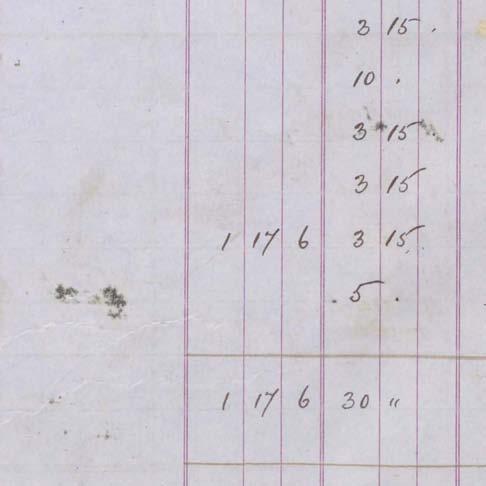 3 15 .
10 .
3 15
3 15
1 17 6 3 15
. 5 .
1 17 6 30 "